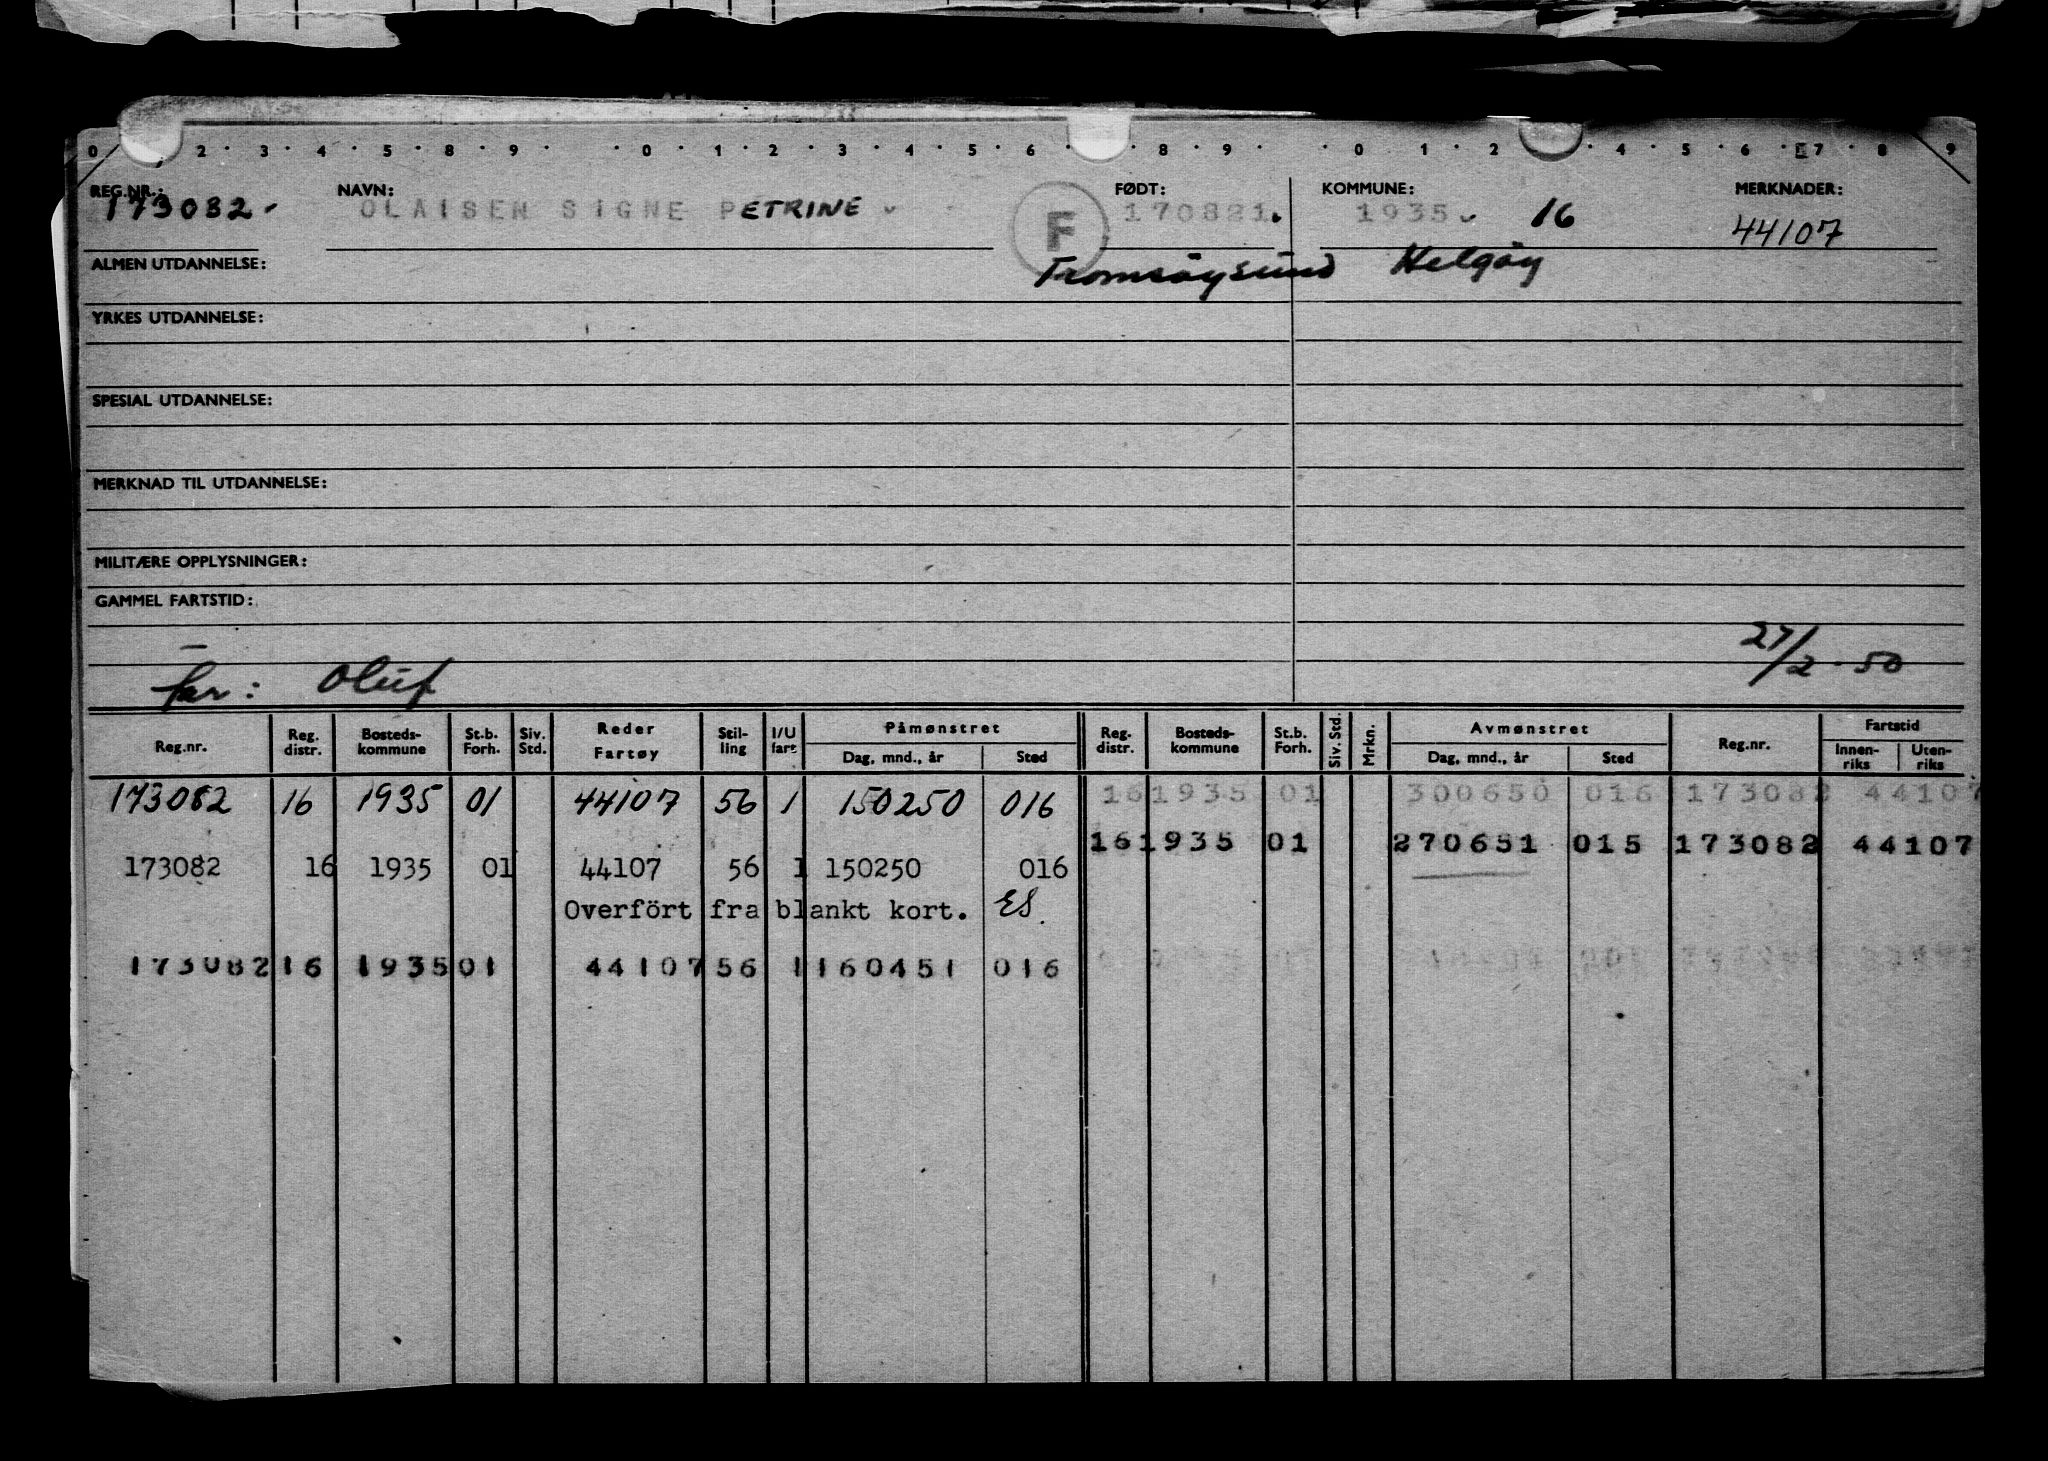 0 2 · 3 · 4 · 5 · 8 · 9 · · 0 · 1 · 2 · 3 · 4 · 5 · 6 · 8 · 9 · · 0 · 1 · 2 · 4 · 5 · 6 · 7 · 8 · 9
REG.NR.: NAVN: FØDT: KOMMUNE: MERKNADER:
173082. OLAISEN SIGNE PETRINE F 170821. 1935 16 44107
ALMEN UTDANNELSE: Tromsöysund Helgöy
YRKES UTDANNELSE:
SPESIAL UTDANNELSE:
MERKNAD TIL UTDANNELSE:
MILITÆRE OPPLYSNINGER:
GAMMEL FARTSTID:
far: Oluf 27/2-50
Reg.nr. Reg. distr. Bosteds-kommune St.b. Forh. Siv. Std. Reder Fartøy Stil-ling I/U fart Påmønstret Dag, mnd., år Sted Reg. distr. Bosteds-kommune St.b. Forh. Siv. Std. Mrkn. Avmønstret Dag, mnd., år Sted Reg.nr. Fartstid Innen-riks Uten-riks
173082 16 1935 01 44107 56 1 150250 016 16 1935 01 300650 016 173082 44107
16 1935 01 270651 015 173082 44107
173082 16 1935 01 44107 56 1 150250 016
Overfört fra blankt kort. ES
173082 16 1935 01 44107 56 1 160451 016